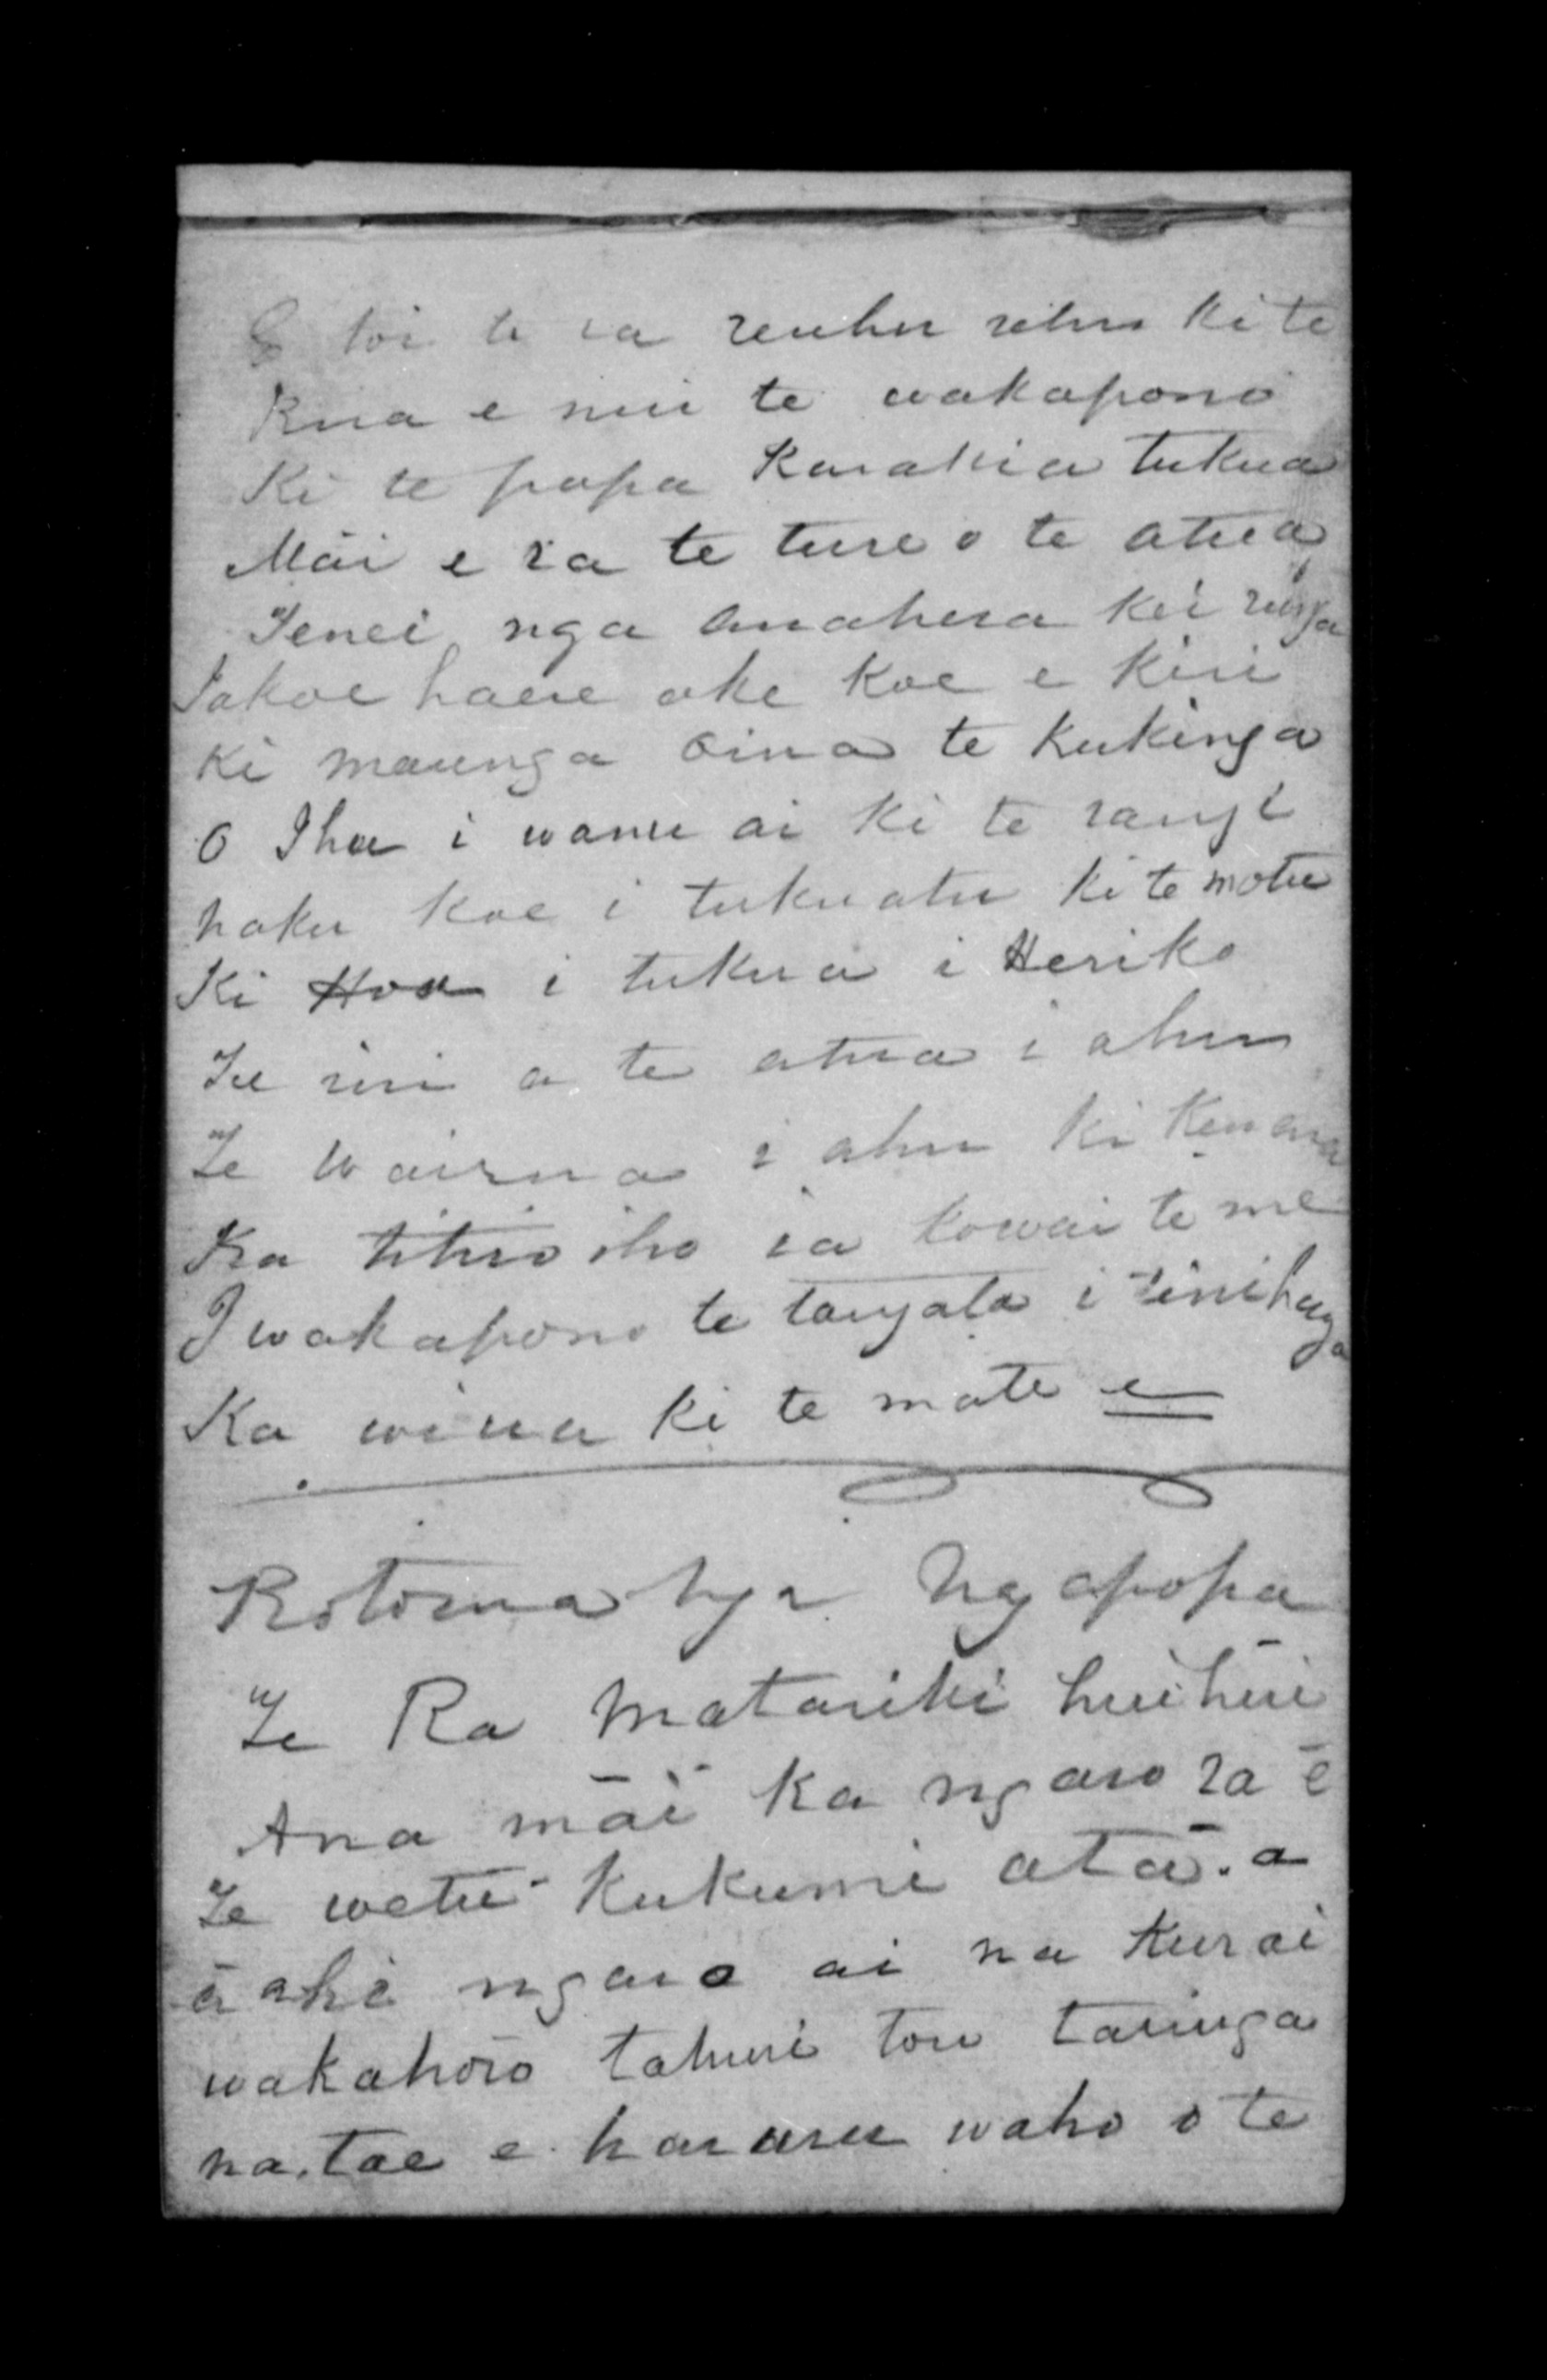 E toi te ra renhu rehu ki te
Rua e nui te wakapono
Ki te papa Karakia tukua
Mai e ra te ture o te atua
Tenei nga anahera kei runga
Iakoe haere ake koe e kiri
Ki maunga Oina te kukinga
O Ihu i wanu ai ki te rangi
naku koe i tukuatu ki te motu
Ki Hoa i tukua i Heriko
Te riri a te atua i ahu
Te Wairua i ahu ki Kenana
Ka titiro iho ia kowai te me
I wakapono te tangata i rinihanga
Ka wiua ki te mate e
Rotorua Ngapopa
Te Ra Matariki huihui
Ana mai ka ngaro ra e
Te wetu kukume ata. a
a ahi ngaro ai na Kurai
wakahoro tahuri tou taringa
na. tae e. haruru waho o te